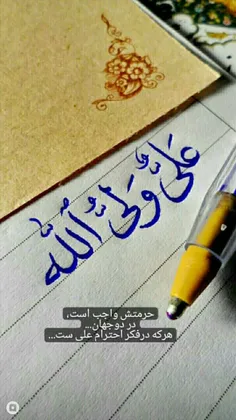 عَلیٌّ وَلیُّ ٱللّٰه
حرمتش واجب است،
در دوجهان...
هرکه درفکر احترام علی ست...